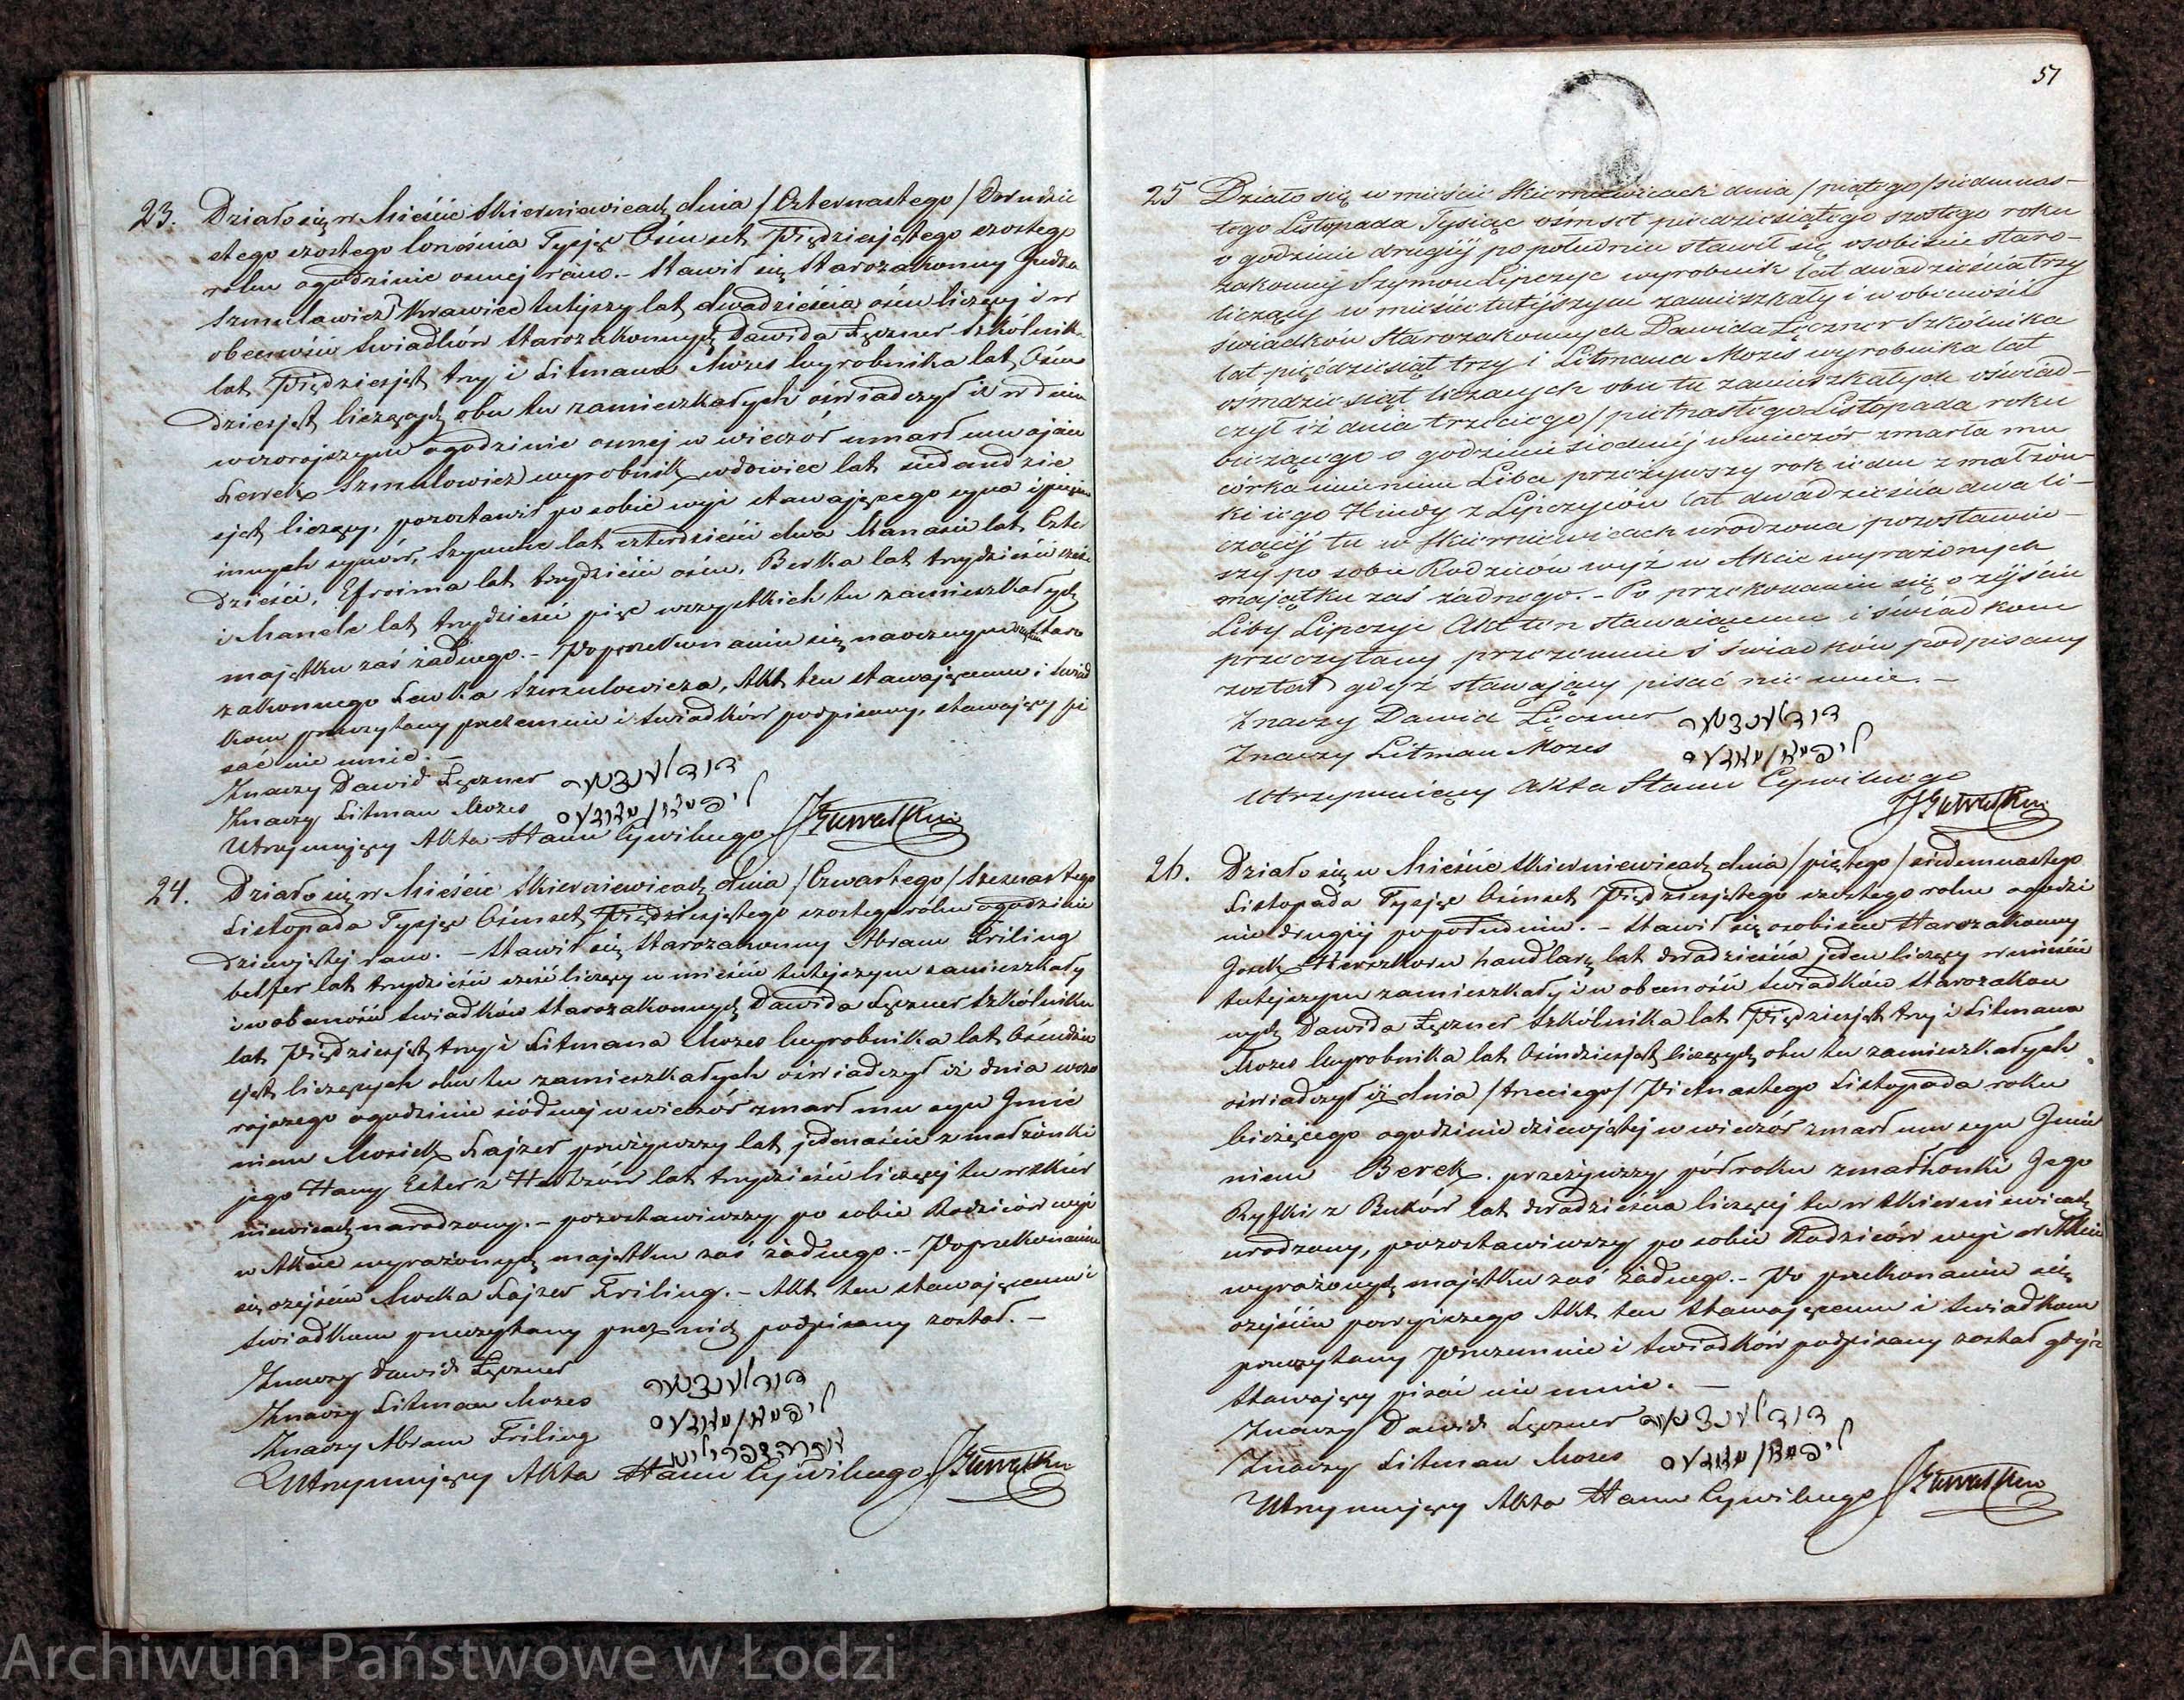 23. Działo się w Mieście Skierniewicach dnia / Czternastego / Dwudzie
stego szostego Września Tysiąc Ośmset Pięćdziesiątego szostego
roku o godzinie osmej rano. – Stawił się Starozakonny Judka
Szmulowicz Krawiec tutejszy lat dwadzieścia ośm liczący i w
obecności Swiadków Starozakonnych Dawida Łęczner Szkólnik
lat Pięćdziesiąt trzy i Litmana Mozes Wyrobnika lat Ośm
dziesiąt liczących obu tu zamieszkałych oświadczył iż w dniu
wczorajszym o godzinie osmej w wieczór umarł mu ojciec
Lewek Szmulowicz wyrobnik wdowiec lat siedmdzie
siąt liczący, pozostawił po sobie wyż stawającego syna i pięciu
innych synów, Szymche lat czterdzieści dwa Manasie lat Czter
dzieści, Efroima lat trzydzieści ośm, Berka lat trzydzieści sześć
i Manele lat trzydzieści pięć wszystkich tu zamieszkałych
majątku zaś żadnego. – Po przekonaniu się naocznym Staro
zakonnego Lewka Szmulowicza, Akt ten stawającemu i Swiad
kom przeczytany przezemnie i Swiadków podpisany, stawający pi
sać nie umie. –
Znaczy Dawid Łęczner
Znaczy Litman Mozes
Utrzymujący Akta Stanu Cywilnego
24. Działo się w Mieście Skierniewicach dnia / Czwartego / Szesnastego
Listopada Tysiąc Ośmset Pięćdziesiątego szostego roku o godzinie
dziewiątej rano. – Stawił się Starozakonny Abram Friling
belfer lat trzydzieści sześć liczący w mieście tutejszym zamieszkały
i w obecności Swiadków Starozakonnych Dawida Łęczner Szkólnika
lat Pięćdziesiąt trzy i Litmana Mozes Wyrobnika lat Ośmdzie
siąt liczących obu tu zamieszkałych oświadczył iż dnia wczo
rajszego o godzinie siódmej w wieczór zmarł mu syn Imie
niem Mosiek Lajzer przeżywszy lat jedenaście z małżonki
jego Hany Ester z lat trzydzieści liczącej tu w Skier
niewicach narodzony. – pozostawiwszy po sobie Rodziców wyż
w Akcie wyrażonych majątku zaś żadnego. – Po przekonaniu
się o zejściu Moska Lajzer Friling. – Akt ten stawającemu i
Swiadkom przeczytany przez nich podpisany został. –
Znaczy Dawid Łęczner
Znaczy Litman Mozes
Znaczy Abram Friling
Utrzymujący Akta Stanu Cywilnego
51
25 Działo się w mieście Skierniewicach dnia / piątego / siedmnas–
tego Listopada Tysiąc ośmset piędziesiątego szostego roku
o godzinie drugiéj po południu stawił się osobiście staro–
zakonny Szymon Lipczyc wyrobnik lat dwadzieścia trzy
liczący w mieście tutéjszym zamieszkały i w obecności
świadków Starozakonnych Dawida Łęczner Szkólnika
lat pięćdziesiąt trzy i Litmana Mozes wyrobnika lat
ośmdziesiąt liczących obu tu zamieszkałych oświad–
czył iż dnia trzeciego / pietnastego Listopada roku
bieżącego o godzinie siodméj w wieczór zmarła mu
córka imieniem Liba przeżywszy rok ieden z małżon–
ki iego Hindy z Lipczyców lat dwadzieścia dwa li–
czącéj tu w Skierniewicach urodzona pozostawiw–
szy po sobie Rodziców wyż w Akcie wyrażonych
majątku zaś żadnego. – Po przekonaniu się o zéjściu
Liby Lipczyc Akt ten stawaiącemu i świadkom
przeczytany przezemnie i świadków podpisany
został gdyż stawający pisać nie umie. –
Znaczy Dawid Łęczner
Znaczy Litman Mozes
Utrzymuiący Akta Stanu Cywilnego
26. Działo się w Mieście Skierniewicach dnia / piątego / siedemnastego
Listopada Tysiąc Ośmset Pięćdziesiątego szostego roku o godzi
nie drugiéj popołudniu. – Stawił się osobiście Starozakonny
Josek Herszkorn handlarz lat dwadzieścia jeden liczący w mieście
tutejszym zamieszkały i w obecności Swiadków Starozakon
nych Dawida Łęczner Szkólnika lat Pięćdziesiąt trzy i Litmana
Mozes Wyrobnika lat Ośmdziesiąt liczących obu tu zamieszkałych
oświadczył iż dnia / trzeciego / Pietnastego Listopada roku
bieżącego o godzinie dziewiątej w wieczór zmarł mu syn Imie
niem Berek. przeżywszy półroku z małżonki Jego
Ryfki z Butów lat dwadzieścia liczącej tu w Skierniewicach
urodzony, pozostawiwszy po sobie Rodziców wyż w Akcie
wyrażonych majątku zaś żadnego. – Po przekonaniu się
o zejściu powyższego Akt ten Stawającemu i Swiadkom
przeczytany przezemnie i Swiadków podpisany został gdyż
Stawający pisać nie umie. –
Znaczy Dawid Łęczner
Znaczy Litman Mozes
Utrzymujący Akta Stanu Cywilnego
Archiwum Państwowe w Łodzi